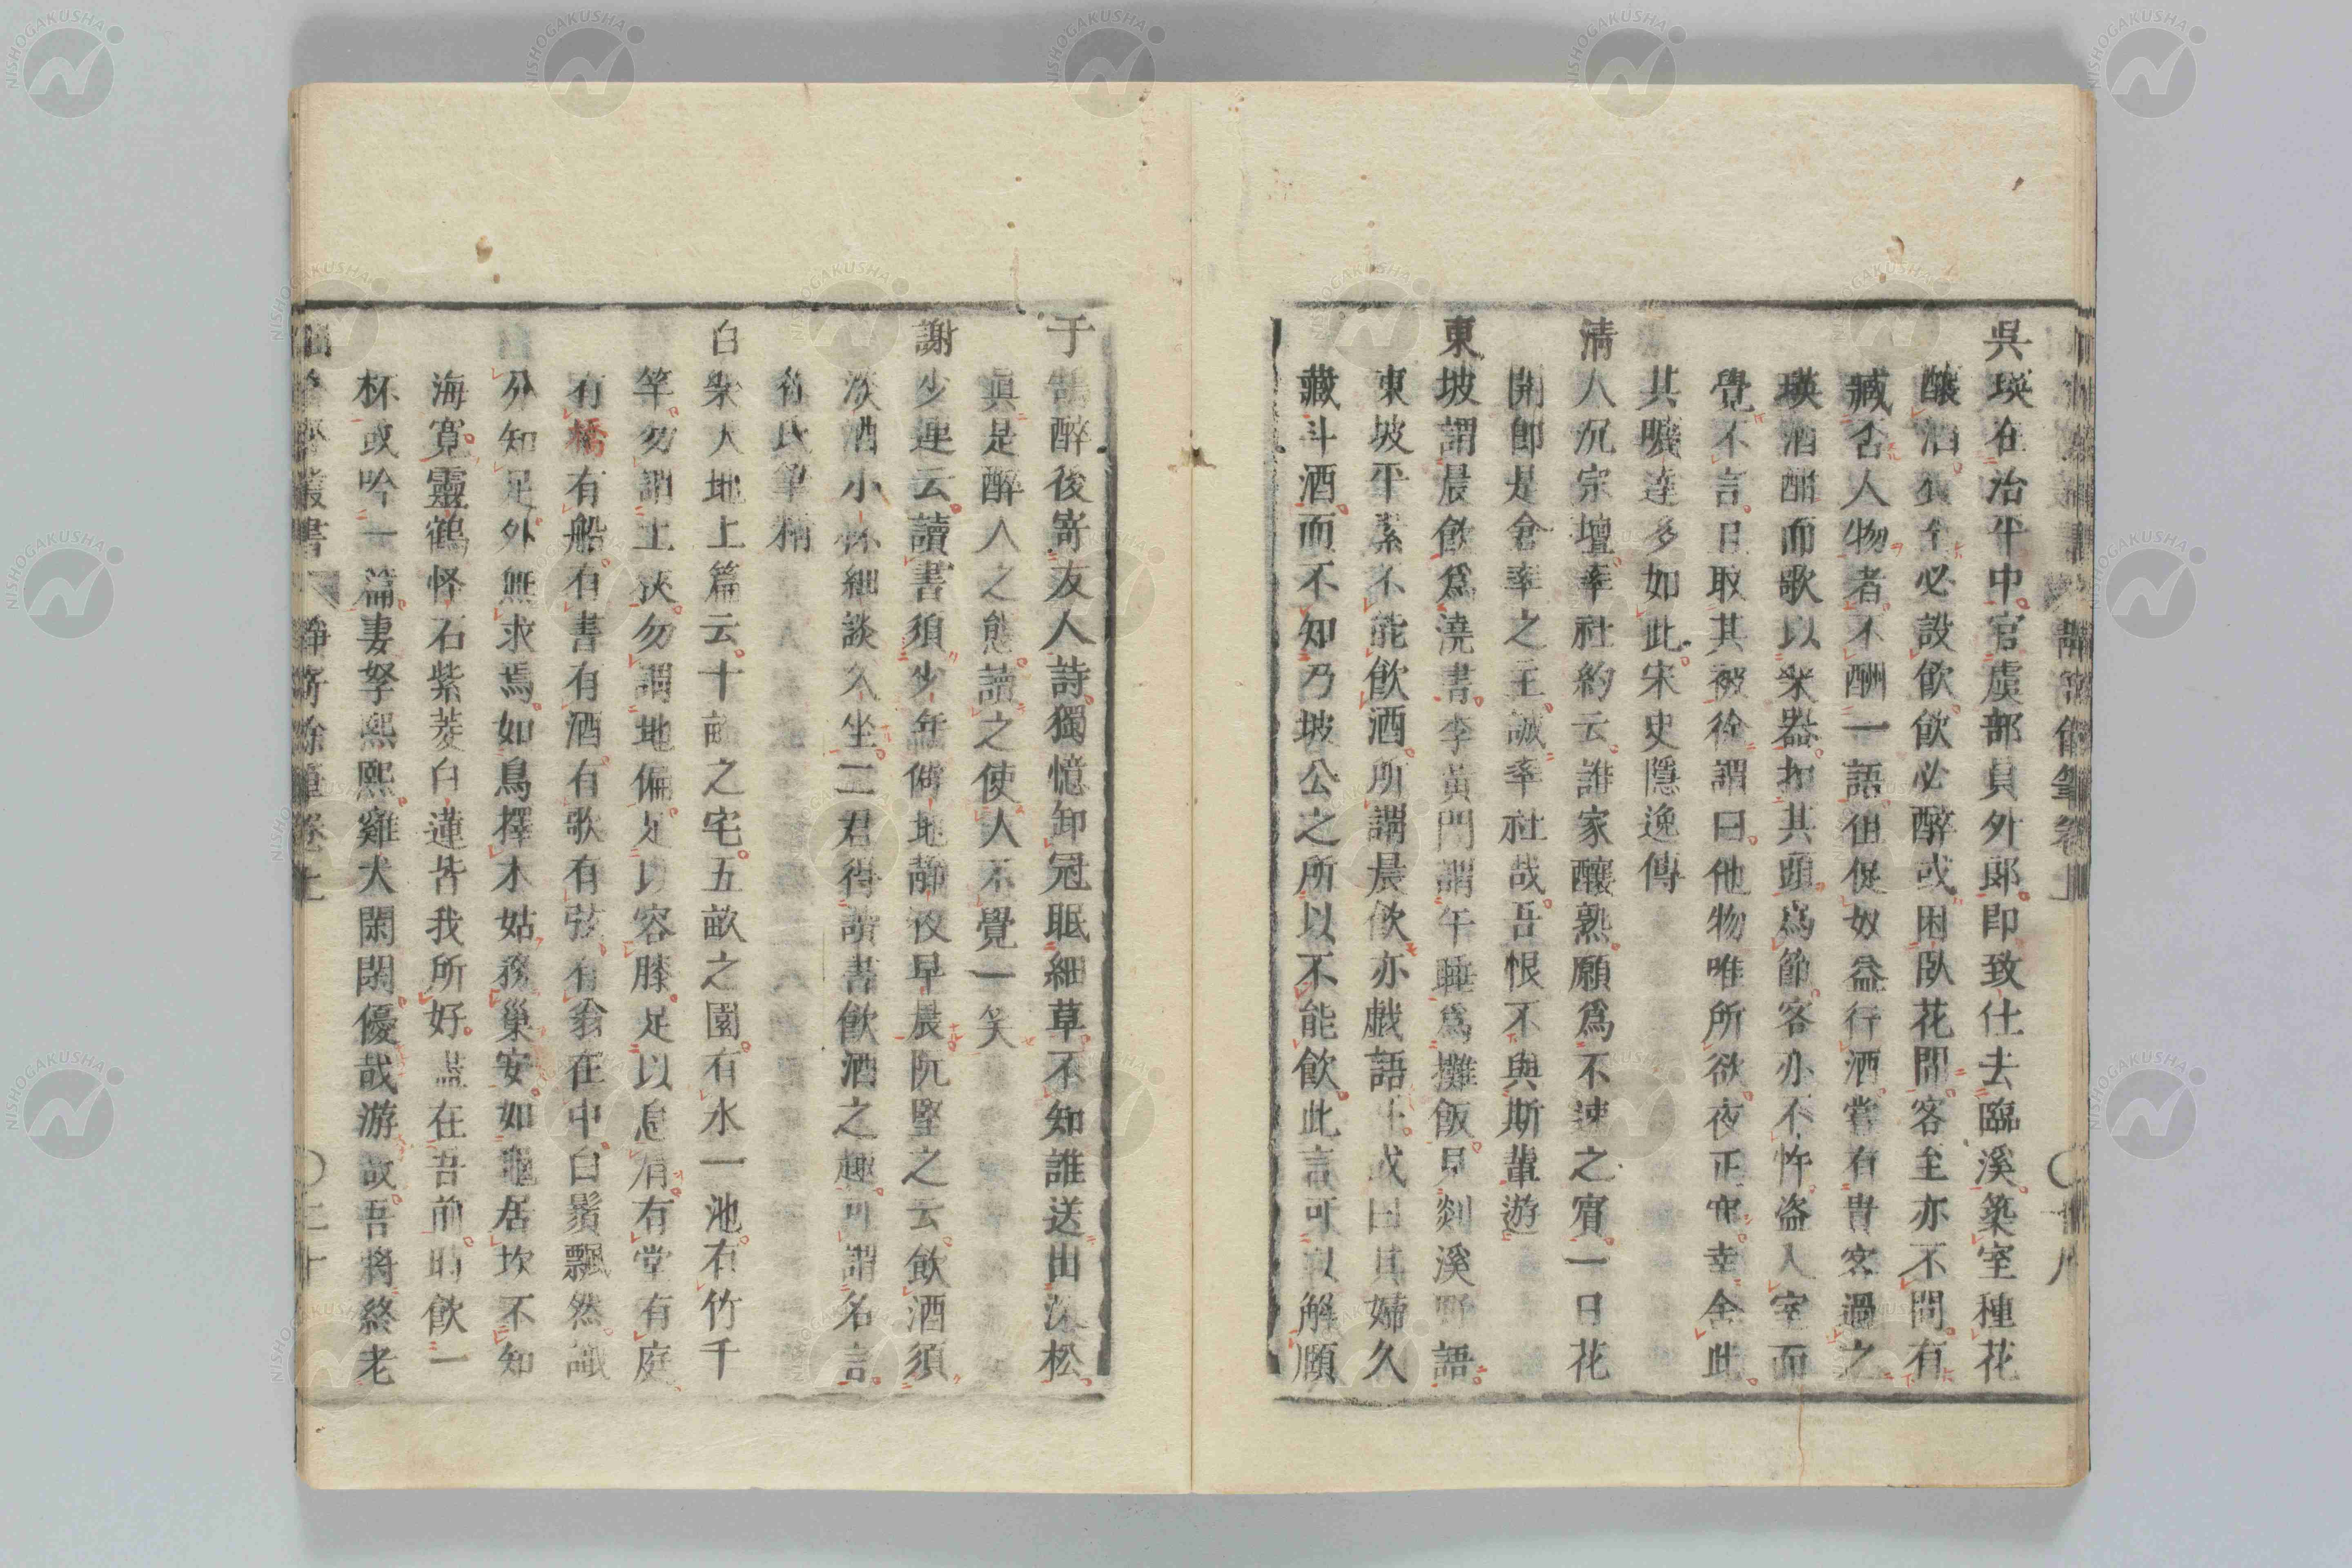 吳瑛在治平中官虞部員外郎即致仕去臨溪築室種花
釀酒客至必設飲飲必醉或困臥花間客至亦不問有
臧否人物者不酬一語但促奴益行酒嘗有貴客過之
瑛酒酣而歌以樂器扣其頭爲節客亦不忤盗入室而
覺不言且取其被徐謂曰他物唯所欲夜正寒幸舍此
其曠達多如此宋史隱逸傳
清人沉宗壇率社約云誰家釀熟願爲不速之賓一日花
開即是會率之主誠率社哉吾恨不與斯輩遊
東坡謂晨飲爲澆書李黃門謂午睡爲攤飯見剡溪野語
東坡平素不能飲酒所謂晨飲亦戲語耳或曰其婦久
藏斗酒而不知乃坡公之所以不能飲此言可以解頤
于鵠醉後寄友人詩獨憶卸冠眠細草不知誰送出深松
眞是醉人之態讀之使人不覺一笑
謝少連云讀書須少年僻地靜夜早晨阮堅之云飲酒須
淡酒小杯細談久坐二君得讀書飲酒之趣可謂名言
白樂天池上篇云十畝之宅五畝之園有水一池有竹千
竿勿謂土狹勿謂地偏足以容膝足以息肩有堂有庭
有橋有船有書有酒有歌有弦有翁在中白鬚飄然識
分知足外無求焉如鳥擇木姑務巢安如龜居坎不知
海寬靈鶴怪石紫菱白蓮皆我所好盡在吾前時飲一
杯或吟一篇妻孥熙熙雞犬閑閑優哉游哉吾將終老